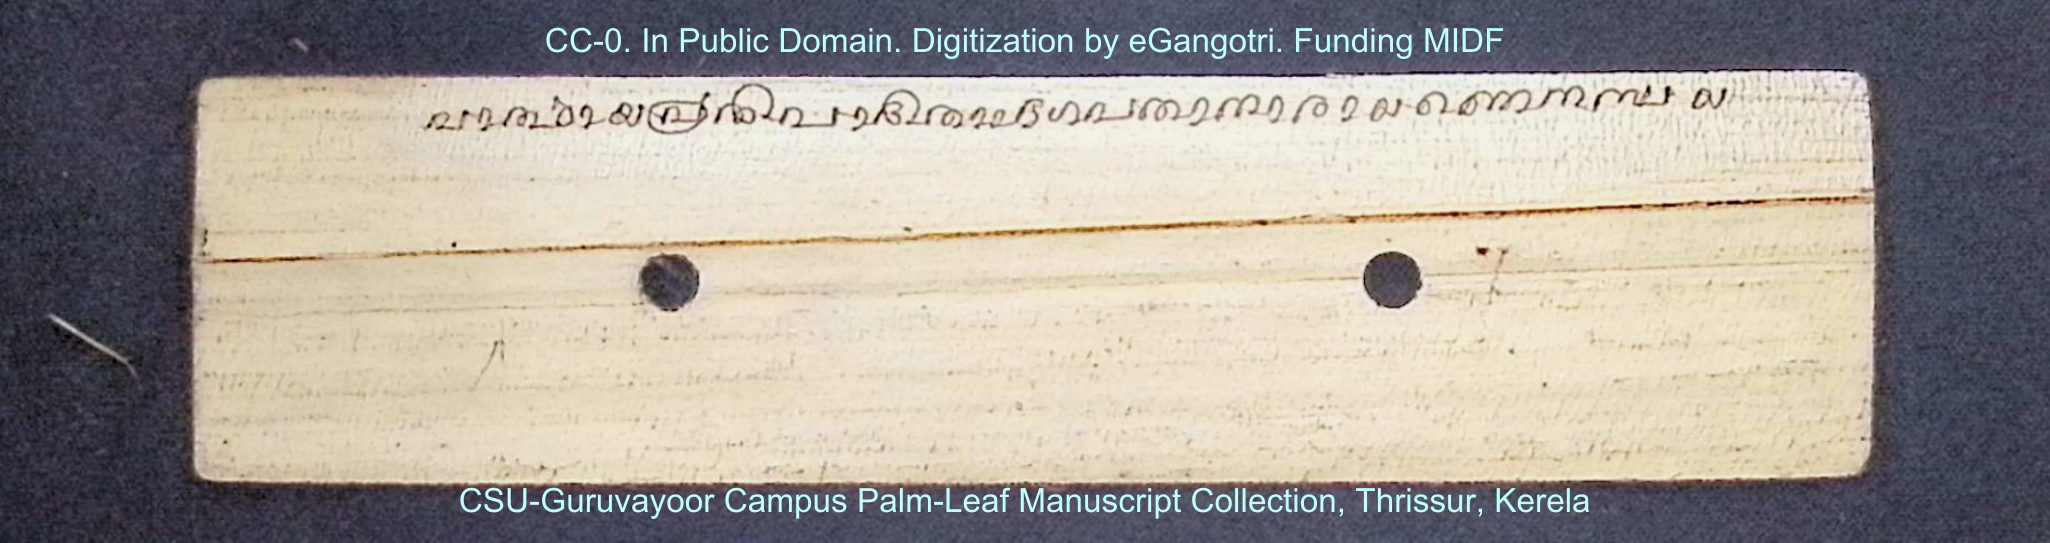 CC-0. In Public Domain. Digitization by eGangotri. Funding MIDF
പാൎത്ഥായപ്രതിപാദിതാംഭഗവതാനാരായണെനസ്വയ
CSU-Guruvayoor Campus Palm-Leaf Manuscript Collection, Thrissur, Kerela